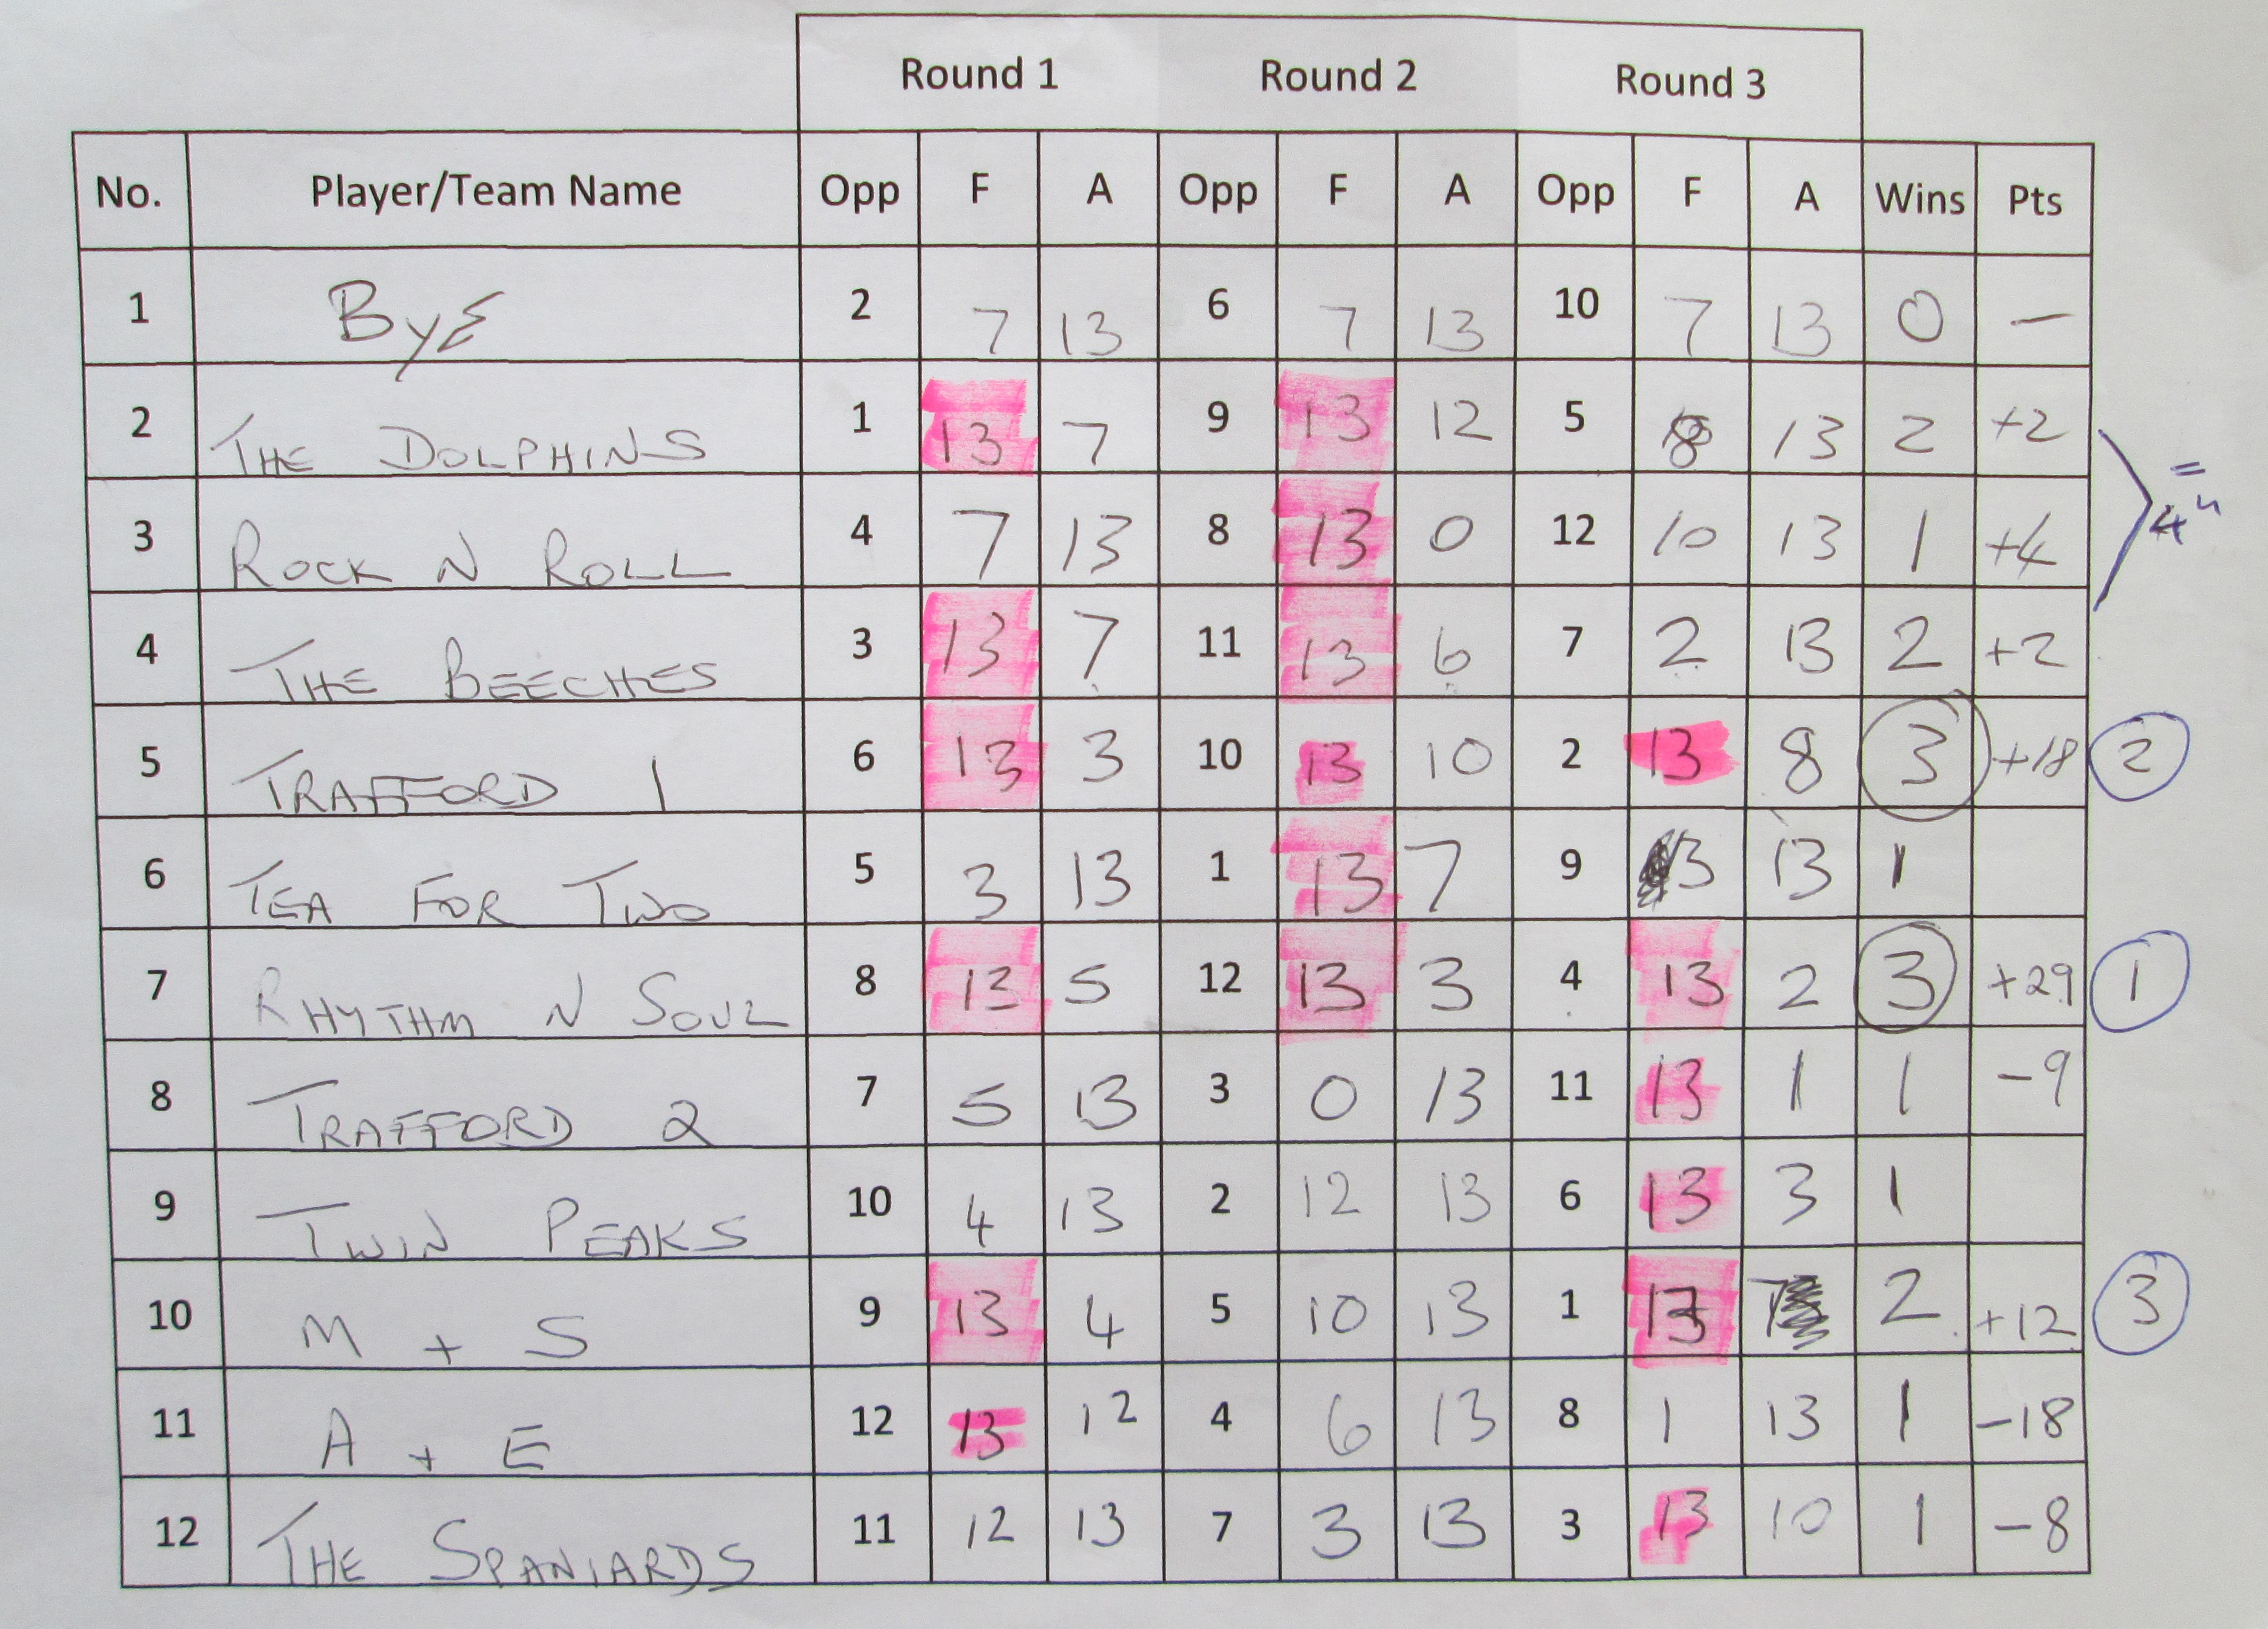 Round 1 Round 2 Round 3
No. Player/Team Name Opp F A Opp F A Opp F A Wins Pts
1 BYE 2 7 13 6 7 13 10 7 13 0 —
2 THE DOLPHINS 1 13 7 9 13 12 5 8 13 2 +2
3 ROCK N ROLL 4 7 13 8 13 0 12 10 13 1 +4
= 4
4 THE BEECHES 3 13 7 11 13 6 7 2 13 2 +2
5 TRAFFORD 1 6 13 3 10 13 10 2 13 8 3 +18 2
6 TEA FOR TWO 5 3 13 1 13 7 9 3 13 1
7 RHYTHM N SOUL 8 13 5 12 13 3 4 13 2 3 +29 1
8 TRAFFORD 2 7 5 13 3 0 13 11 13 1 1 -9
9 TWIN PEAKS 10 4 13 2 12 13 6 13 3 1
10 M + S 9 13 4 5 10 13 1 13 7 2 +12 3
11 A + E 12 13 12 4 6 13 8 1 13 1 -18
12 THE SPANIARDS 11 12 13 7 3 13 3 13 10 1 -8